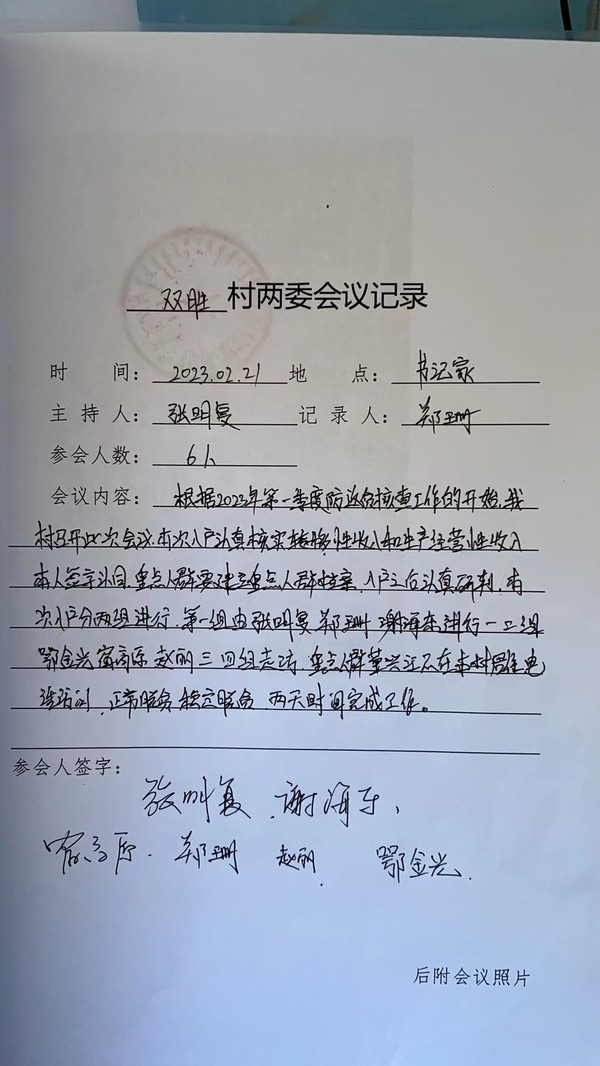 双胜 村两委会议记录
时 间： 2023.02.21 地 点： 书记家
主 持 人： 张明复 记 录 人： 郑珊
参会人数： 6人
会议内容： 根据2023年第一季度防返贫核查工作的开始，我
村召开此次会议，本次入户认真核实转移性收入和生产经营性收入
本人签字认同，重点人群要建立重点人群档案，入户之后认真研判，本
次入户分两组进行，第一组由张明复 郑珊 谢海东进行一二组
鄂金兴 高原 赵丽三四组走访，重点人群 不在本村居住电
话访问，正常脱贫，稳定脱贫，两天时间完成工作。
参会人签字：
张明复、谢海东、
高原. 郑珊 赵丽. 鄂金兴.
后附会议照片